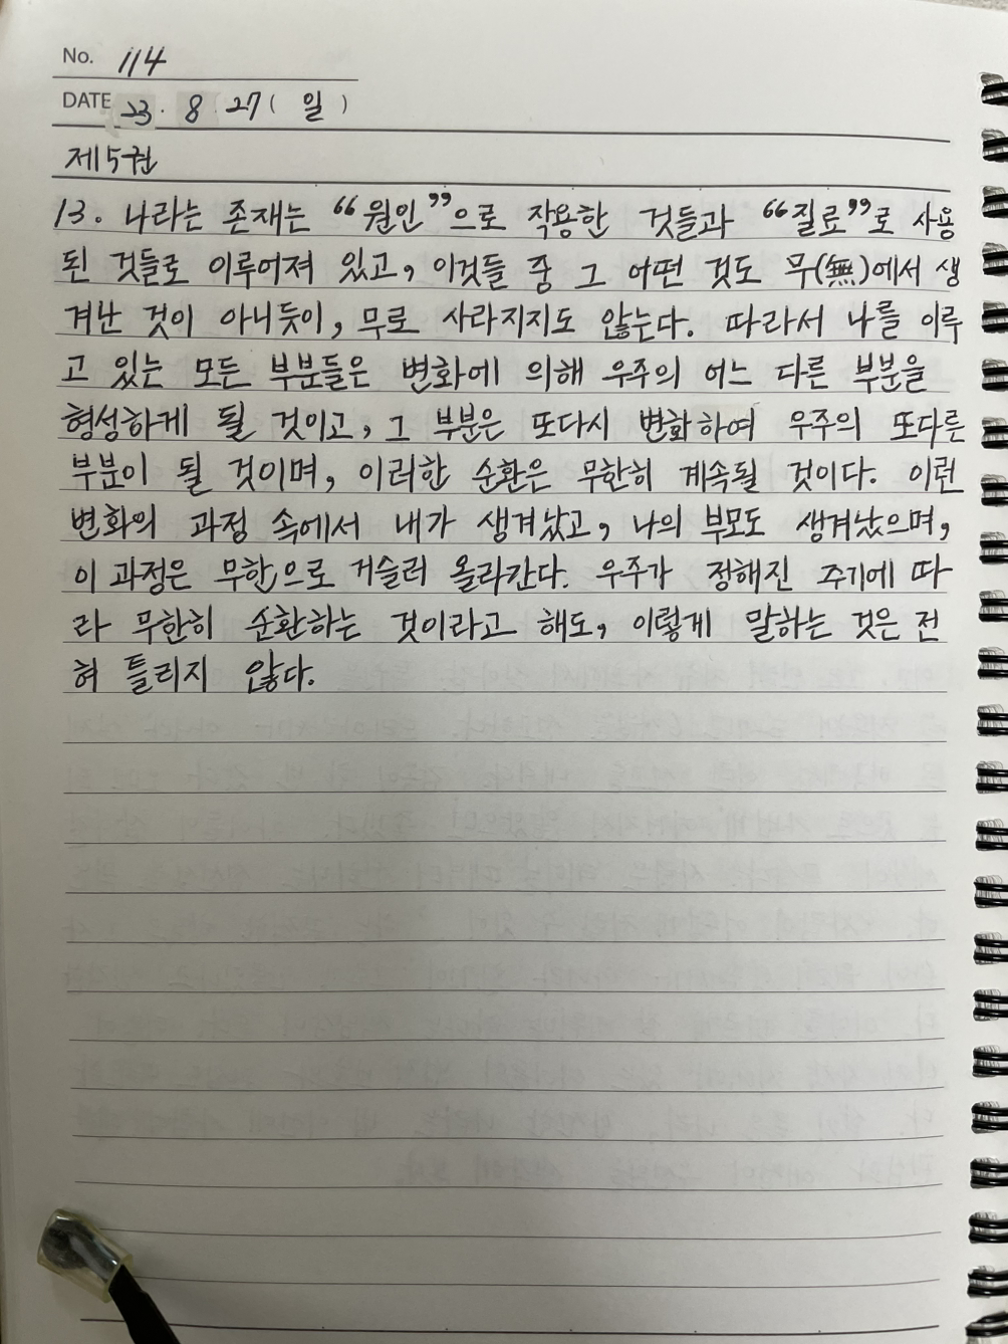 No. 114
DATE 23. 8. 27 ( 일 )
제5권
13. 나라는 존재는 “원인”으로 작용한 것들과 “질료”로 사용
된 것들로 이루어져 있고, 이것들 중 그 어떤 것도 무(無)에서 생
겨난 것이 아니듯이, 무로 사라지지도 않는다. 따라서 나를 이루
고 있는 모든 부분들은 변화에 의해 우주의 어느 다른 부분을
형성하게 될 것이고, 그 부분은 또다시 변화하여 우주의 또다른
부분이 될 것이며, 이러한 순환은 무한히 계속될 것이다. 이런
변화의 과정 속에서 내가 생겨났고, 나의 부모도 생겨났으며,
이 과정은 무한으로 거슬러 올라간다. 우주가 정해진 주기에 따
라 무한히 순환하는 것이라고 해도, 이렇게 말하는 것은 전
혀 틀리지 않다.